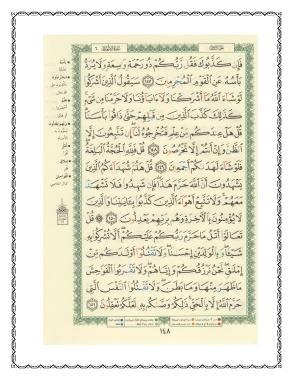 فَإِن كَذَّبُوكَ فَقُل رَّبُّكُمْ ذُو رَحْمَةٍ وَٰسِعَةٍ وَلَا يُرَدُّ
بَأْسُهُۥ عَنِ ٱلْقَوْمِ ٱلْمُجْرِمِينَ ١٤٧ سَيَقُولُ ٱلَّذِينَ أَشْرَكُوا۟
لَوْ شَآءَ ٱللَّهُ مَآ أَشْرَكْنَا وَلَآ ءَابَآؤُنَا وَلَا حَرَّمْنَا مِن شَىْءٍ
كَذَٰلِكَ كَذَّبَ ٱلَّذِينَ مِن قَبْلِهِمْ حَتَّىٰ ذَاقُوا۟ بَأْسَنَا
قُلْ هَلْ عِندَكُم مِّنْ عِلْمٍ فَتُخْرِجُوهُ لَنَآ إِن تَتَّبِعُونَ إِلَّا
ٱلظَّنَّ وَإِنْ أَنتُمْ إِلَّا تَخْرُصُونَ ١٤٨ قُلْ فَلِلَّهِ ٱلْحُجَّةُ ٱلْبَٰلِغَةُ
فَلَوْ شَآءَ لَهَدَىٰكُمْ أَجْمَعِينَ ١٤٩ قُلْ هَلُمَّ شُهَدَآءَكُمُ ٱلَّذِينَ
يَشْهَدُونَ أَنَّ ٱللَّهَ حَرَّمَ هَٰذَا فَإِن شَهِدُوا۟ فَلَا تَشْهَدْ
مَعَهُمْ وَلَا تَتَّبِعْ أَهْوَآءَ ٱلَّذِينَ كَذَّبُوا۟ بِـَٔايَٰتِنَا وَٱلَّذِينَ
لَا يُؤْمِنُونَ بِٱلْـَٔاخِرَةِ وَهُم بِرَبِّهِمْ يَعْدِلُونَ ١٥٠ قُلْ
تَعَالَوْا۟ أَتْلُ مَا حَرَّمَ رَبُّكُمْ عَلَيْكُمْ أَلَّا تُشْرِكُوا۟ بِهِۦ
شَيْـًٔا وَبِٱلْوَٰلِدَيْنِ إِحْسَٰنًا وَلَا تَقْتُلُوٓا۟ أَوْلَٰدَكُم مِّنْ
إِمْلَٰقٍ نَّحْنُ نَرْزُقُكُمْ وَإِيَّاهُمْ وَلَا تَقْرَبُوا۟ ٱلْفَوَٰحِشَ
مَا ظَهَرَ مِنْهَا وَمَا بَطَنَ وَلَا تَقْتُلُوا۟ ٱلنَّفْسَ ٱلَّتِى
حَرَّمَ ٱللَّهُ إِلَّا بِٱلْحَقِّ ذَٰلِكُمْ وَصَّىٰكُم بِهِۦ لَعَلَّكُمْ تَعْقِلُونَ ١٥١
١٤٨